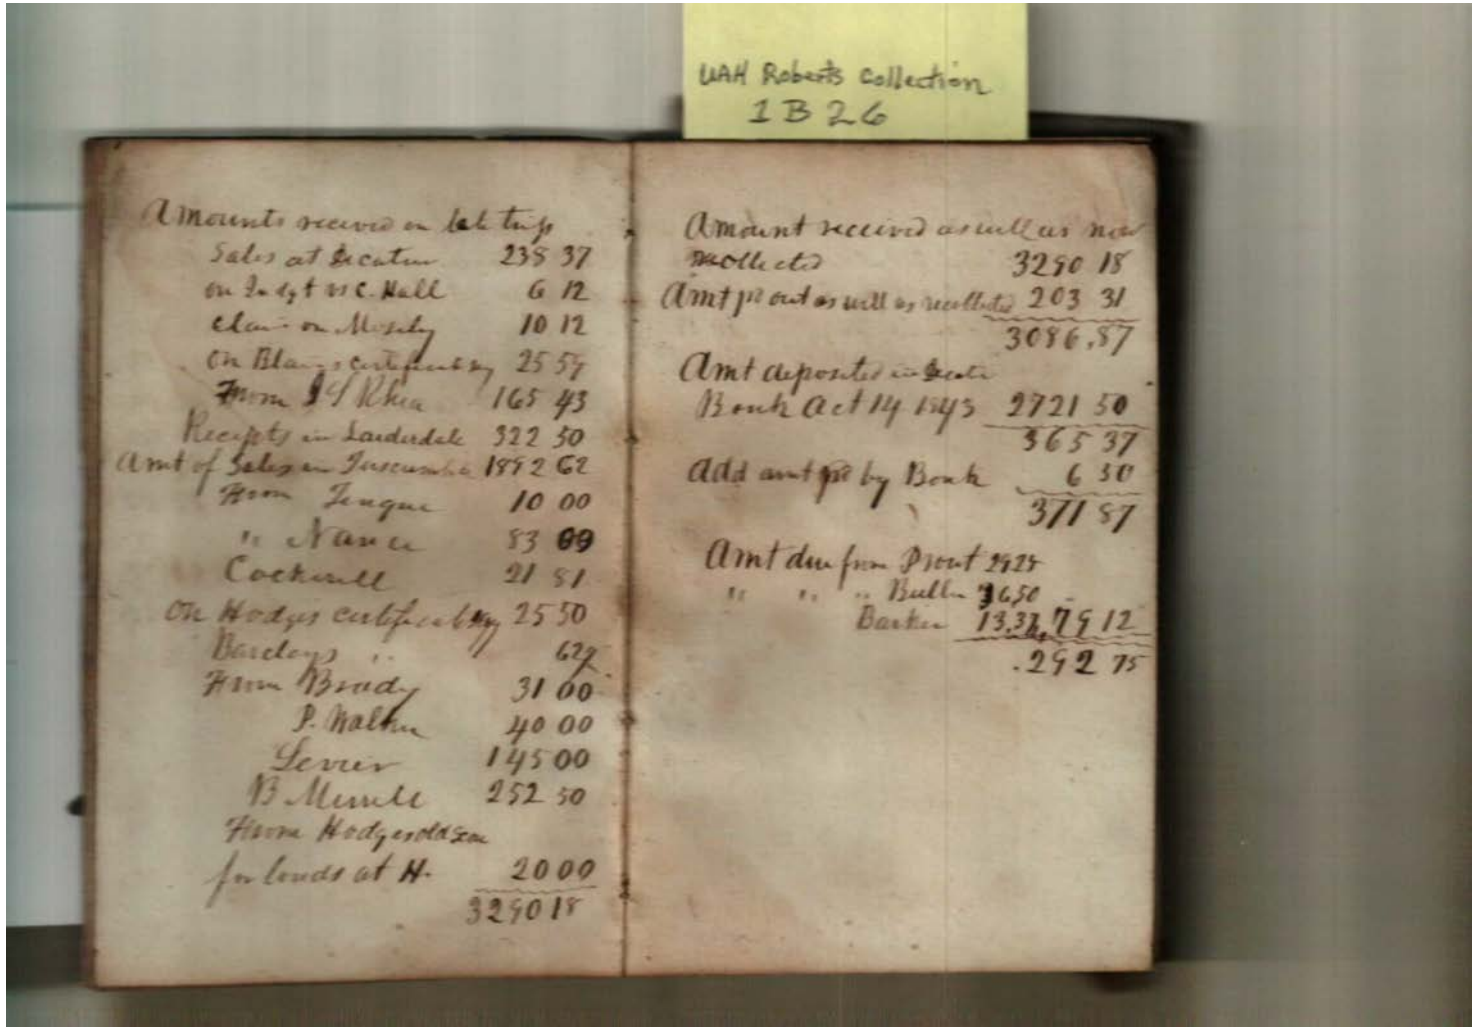 UAH Roberts Collection
1 B 26
Amounts received on late trip
Sales at Decatur 238 37
on Judgt vs C. Hall 6 12
Claim on Mosely 10 12
on Blairs certificate 25 59
From J S Rhea 165 43
Receipts in Lauderdale 322 50
Amt of Sales in Tuscumbia 1892 62
From Teague 10 00
" Nance 83 00
Cockrell 21 81
On Hodges certificate 25 50
Barclays " 62½
From Brady 31 00
P. Walker 40 00
Levier 145 00
B Merrill 252 50
From Hodges old
for lands at H. 20 00
3290 18
Amount received as well as now
recollected 3290 18
Amt pd out as well as recollected 203 31
3086.87
Amt deposited in Decatur
Bank Oct 14 1843 2721 50
365 37
Add amt pd by Bank 6 50
371 87
Amt due from Prout 29 25
" " " 36.50
Barker 13.37 79 12
.292 75